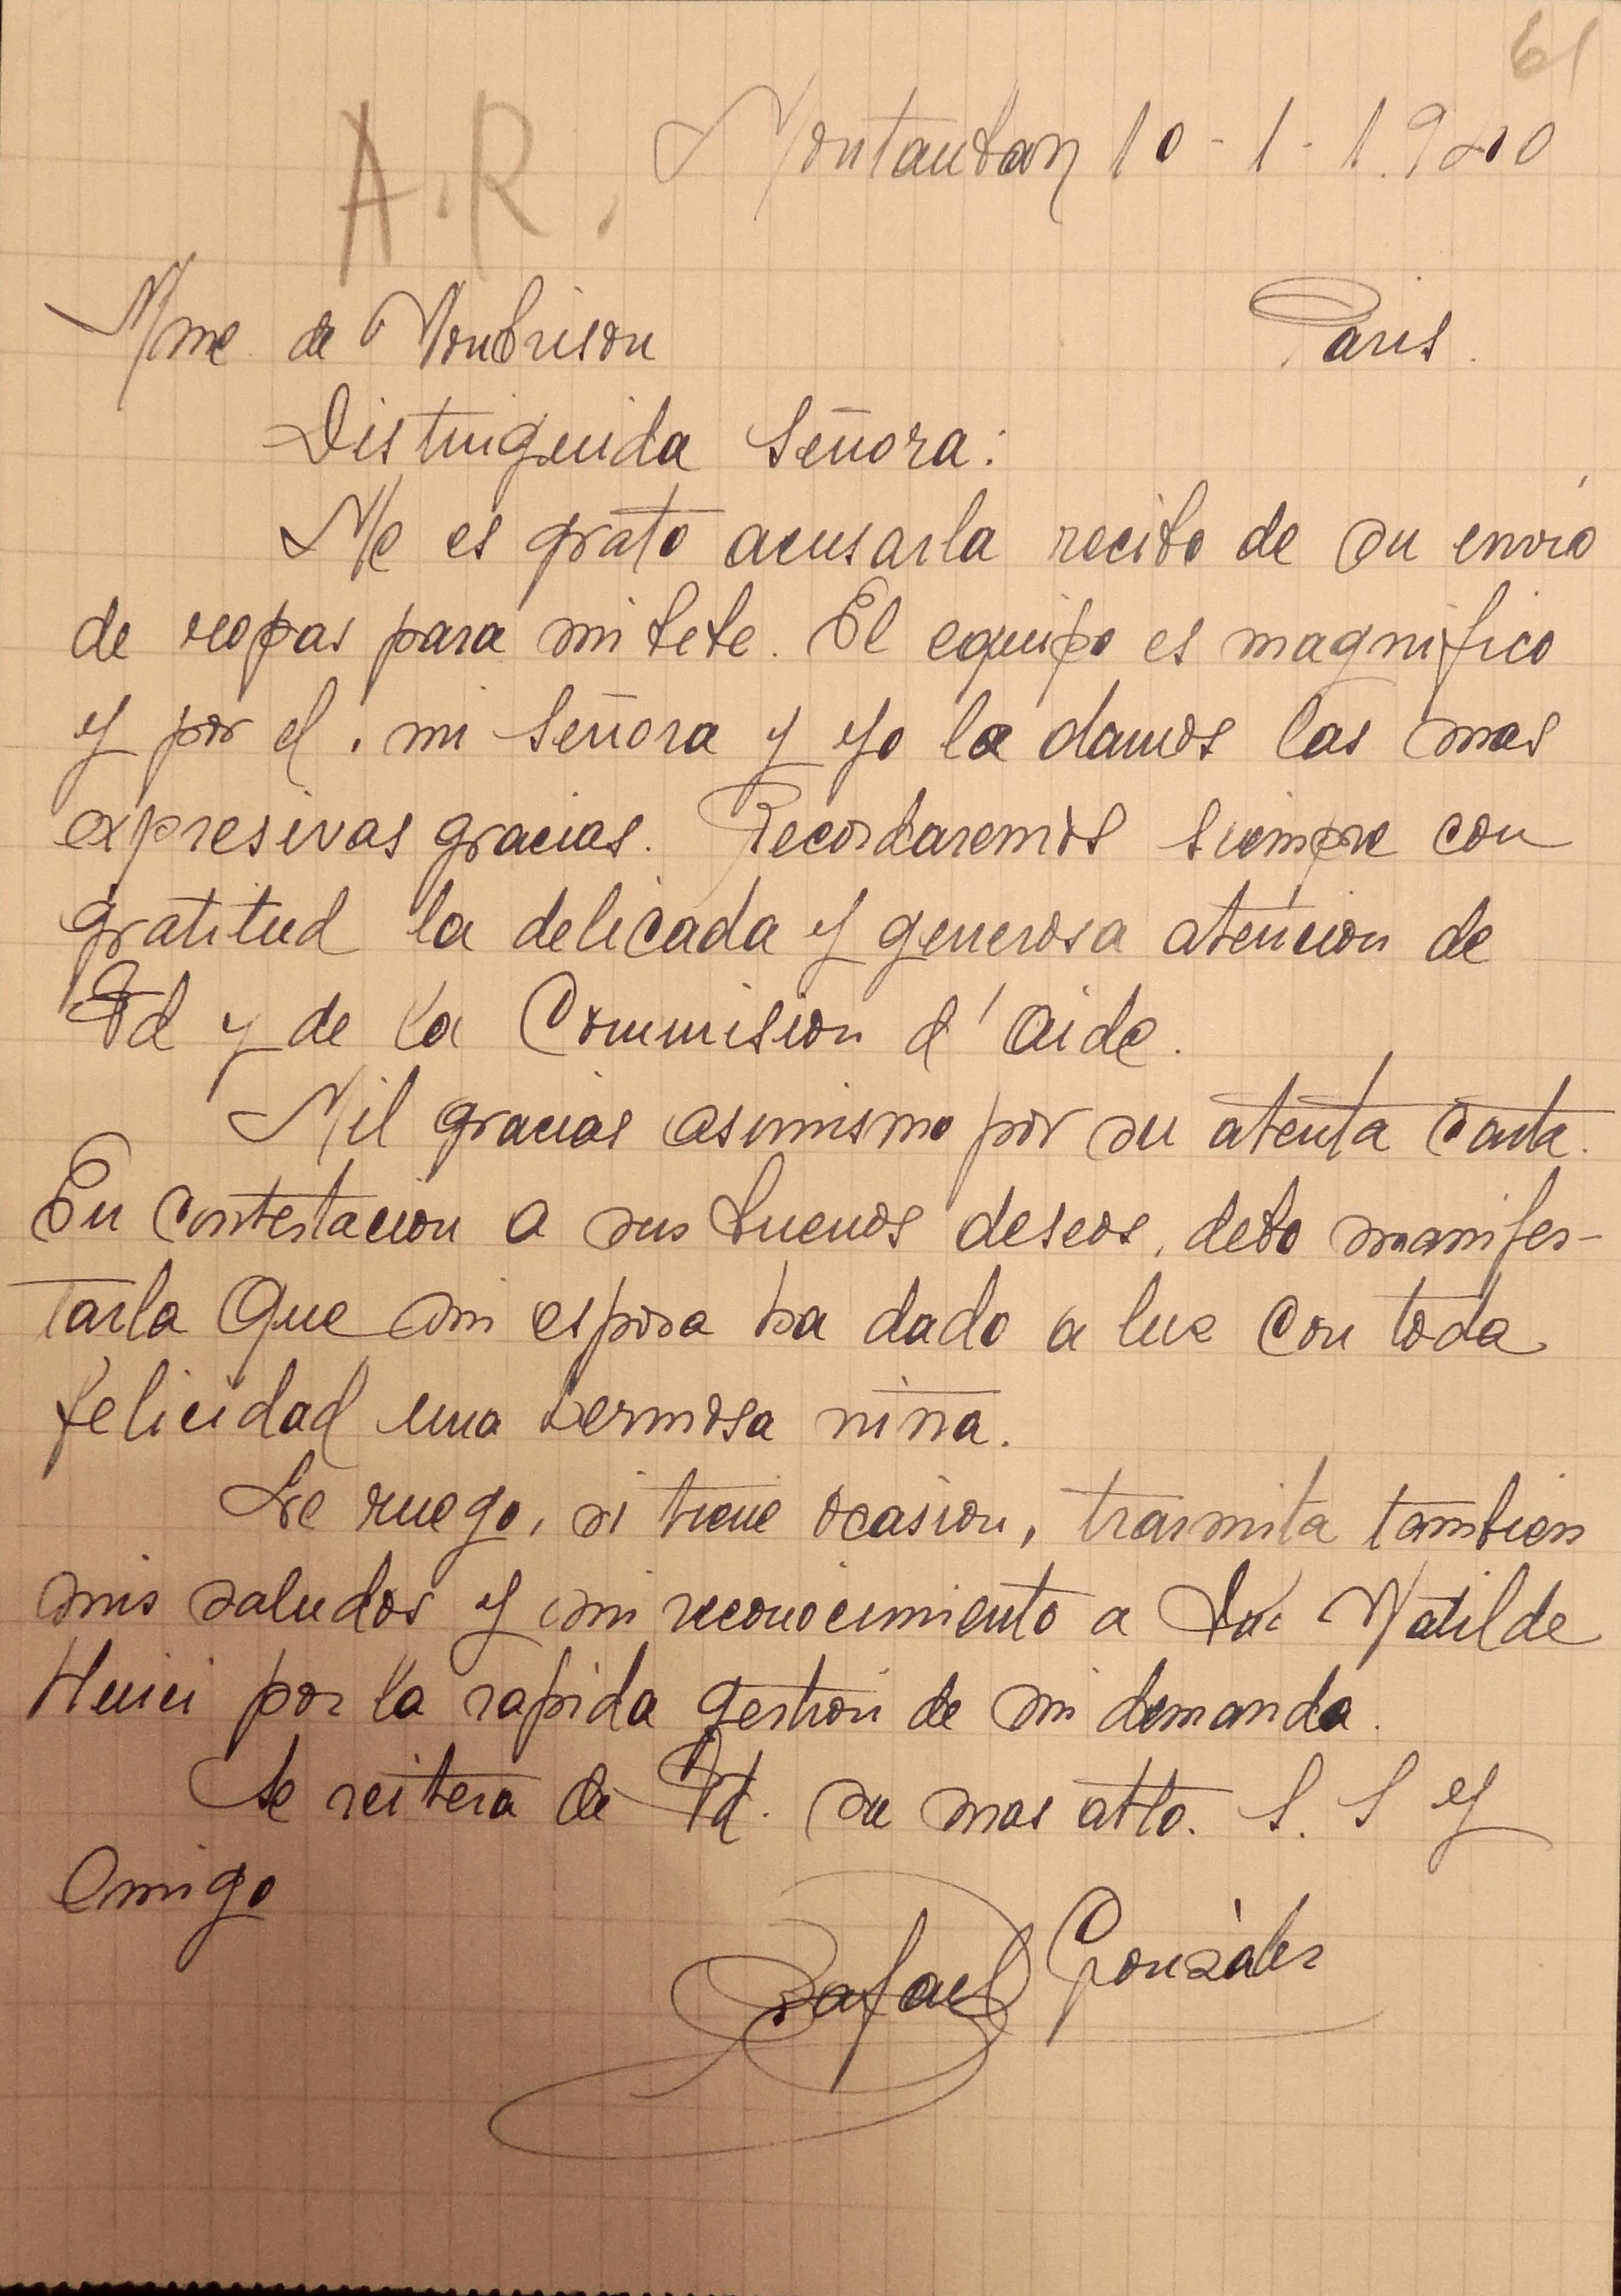 61
A.R. Montauban 10-1-1.940
Mme de Monbrison Paris.
Distinguida Señora:
Me es grato acusarla recibo de su envió
de ropas para mi bebe. El equipo es magnifico
y por el, mi Señora y yo la damos las mas
expresivas gracias. Recordaremos siempre con
gratitud la delicada y generosa atencion de
Vd y de la Commision d'aide.
Mil gracias asimismo por su atenta carta.
En contestacion a sus buenos deseos, debo manifes-
tarla que mi esposa ha dado a luz con toda
felicidad una hermosa niña.
Le ruego, si tiene ocasion, trasmita tambien
mis saludos y mi reconocimiento a Matilde
Huici por la rapida gestion de mi demanda.
Se reitera de Vd. su mas atto. S. S y
amigo
Rafael Gonzàlez